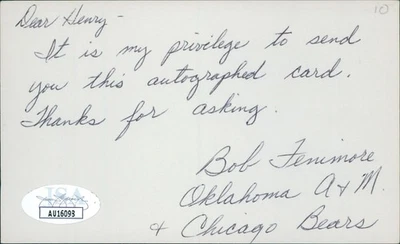 10
Dear Henry -
It is my privilege to send
you this autographed card.
Thanks for asking.
Bob Fenimore
Oklahoma A & M.
& Chicago Bears
JSA
AU16093